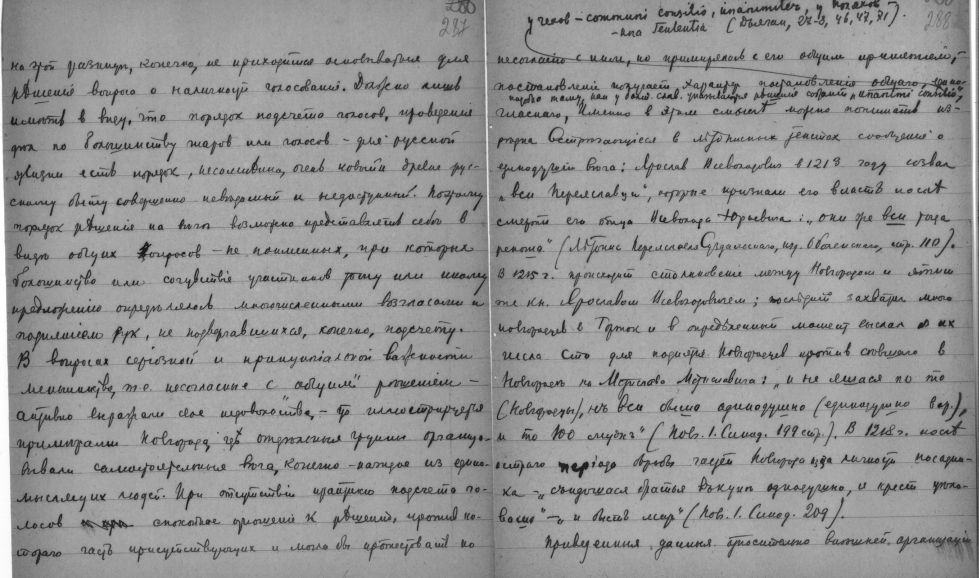 287
на этой разницѣ, конечно, не приходится основываться для
рѣшенія вопроса о наличности голосованія. Должно лишь
имѣть в виду, что порядок подсчета голосов, проведенія
по большинству шаров или голосов – для русской
жизни есть порядок, несомнѣнно, очень новый и древне-рус-
скому быту совершенно невѣдомый и недоступный. Поэтому
порядок рѣшенія на вѣчѣ возможно представлять себѣ в
видѣ общих вопросов – не поименных, при которых
большинство или сочувствіе участников тому или иному
предложенію опредѣлялось многочисленными возгласами и
поднятіем рук, не подвергавшихся, конечно, подсчету.
В вопросах серьозной и принципіальной важности
меньшинство, т.е. несогласные с „общим" рѣшеніем –
активно выдѣляли свое недовольство, – что иллюстрируется
примѣрами Новгорода, гдѣ отдѣльныя группы организо-
вывали самостоятельныя вѣча, конечно – каждое из едино-
мыслящих людей. При отсутствіи практики подсчета го-
лосов спокойное отношеніе к рѣшенію, против ко-
тораго часть присутствующих и могла бы протестовать но
288
у чехов – communi consilio, unanimiter, у поляков –
una sententia (Дьячан, 27-8, 46, 47, 71).
несогласіе с ним, но примирялось с его общим принятіем,
постановленіе получает характер постановленія общаго, едино-
подобно тому, как у балт. слав. указывается рѣшеніе собраній „unanimi consilio",
гласнаго, именно в этом смыслѣ можно понимать из-
рѣдка встрѣчающіяся в лѣтописных текстах сообщенія о
единодушіи вѣча: Ярослав Всеволодович в 1213 году созвал
„вси Переславци", которые признали его власть послѣ
смерти его отца Всеволода Юрьевича: „они же вси тогда
рекоша" (Лѣтопис. Переславля Суздальскаго, изд. Оболенскаго, стр. 110).
В 1215 г. произошло столкновеніе между Новгородом и этим
же кн. Ярославом Всеволодовичем; послѣдній захватил много
новгородцев в Торжок и в опредѣленный момент выслал их
числа сто для поднятія Новгородцев против сѣвшаго в
Новгородѣ кн. Мстислава Мстиславича: „и не яшася по то
(Новгородцы), нъ вси быша одинодушно (единодушно вар.),
и то 100 мужь" (Нов. I. Синод. 199 стр.). В 1218 г. послѣ
остраго періода борьбы частей Новгорода из-за личности посадни-
ка – „съидошася братья въкупѣ однодушно, и крест цѣло-
ваша" – „и бысть мир" (Нов. I. Синод. 209).
Приведенныя данныя относительно внѣшней организаціи